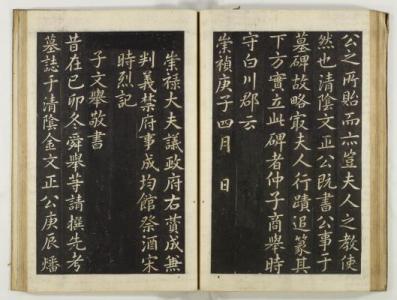 公之所貽而亦豈夫人之教使
然也清陰文正公既書公事于
墓碑故略㝡夫人行蹟追篆其
下方實立此碑者仲子商舉時
守白川郡云
崇禎庚子四月　日
崇祿大夫議政府右贊成兼
判義禁府事成均館祭酒宋
時烈記
子文舉敬書
昔在己卯冬舜舉等請撰先考
墓誌于清陰金文正公庚辰燔